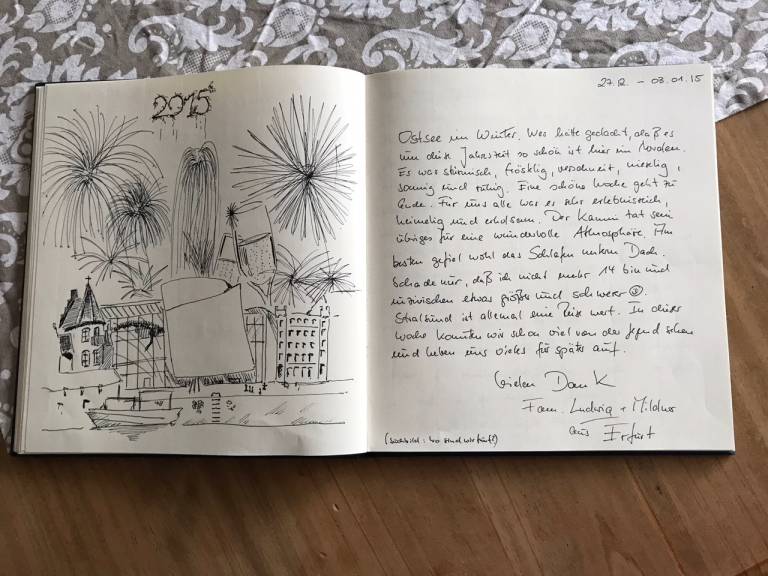 2015
27.12. – 03.01.15
Ostsee im Winter. Wer hätte gedacht, daß es
um diese Jahreszeit so schön ist hier im Norden.
Es war stürmisch, fröstlig, verschneit, nieselig,
sonnig und ruhig. Eine schöne Woche geht zu
Ende. Für uns alle war es sehr erlebnisreich,
heimelig und erholsam. Der Kamin tat sein
übriges für eine wundervolle Atmosphäre. Am
besten gefiel wohl das Schlafen unterm Dach.
Schade nur, daß ich nicht mehr 14 bin und
inzwischen etwas größer und schwerer
Stralsund ist allemal eine Reise wert. In dieser
Woche konnten wir schon viel von der Gegend sehen
und heben uns vieles für später auf.
Vielen Dank
Fam. Ludwig + Mildner
aus Erfurt
(Suchbild: wo sind wir fünf?)